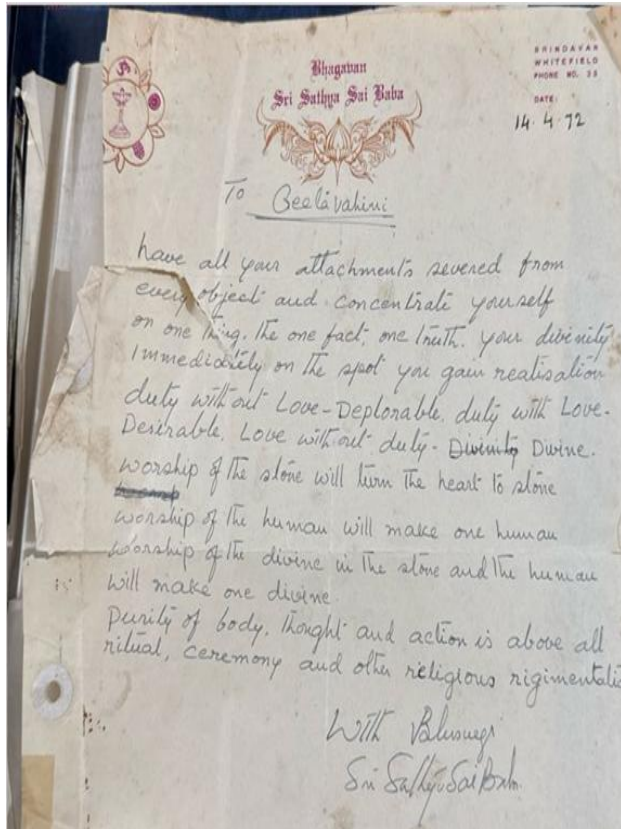 Bhagavan
Sri Sathya Sai Baba
BRINDAVAN
WHITEFIELD
PHONE NO. 33
DATE:
14.4.72
To Geelavahini
have all your attachments severed from
every object and concentrate yourself
on one thing. the one fact, one truth. your divinity
Immediately on the spot you gain realisation
duty without Love-Deplorable. duty with Love-
Desirable. Love without duty - Divinity Divine.
worship of the stone will turn the heart to stone
worship of the human will make one human
worship of the divine in the stone and the human
will make one divine.
purity of body, thought and action is above all
ritual, ceremony and other religious
With
Sri Sathya Sai Baba